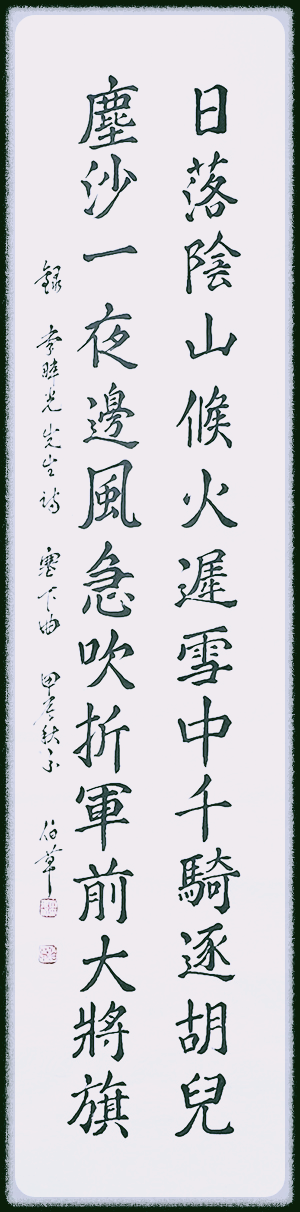 日落陰山候火遲雪中千騎逐胡兒
塵沙一夜邊風急吹折軍前大將旗
錄 李睦光先生詩 塞下曲